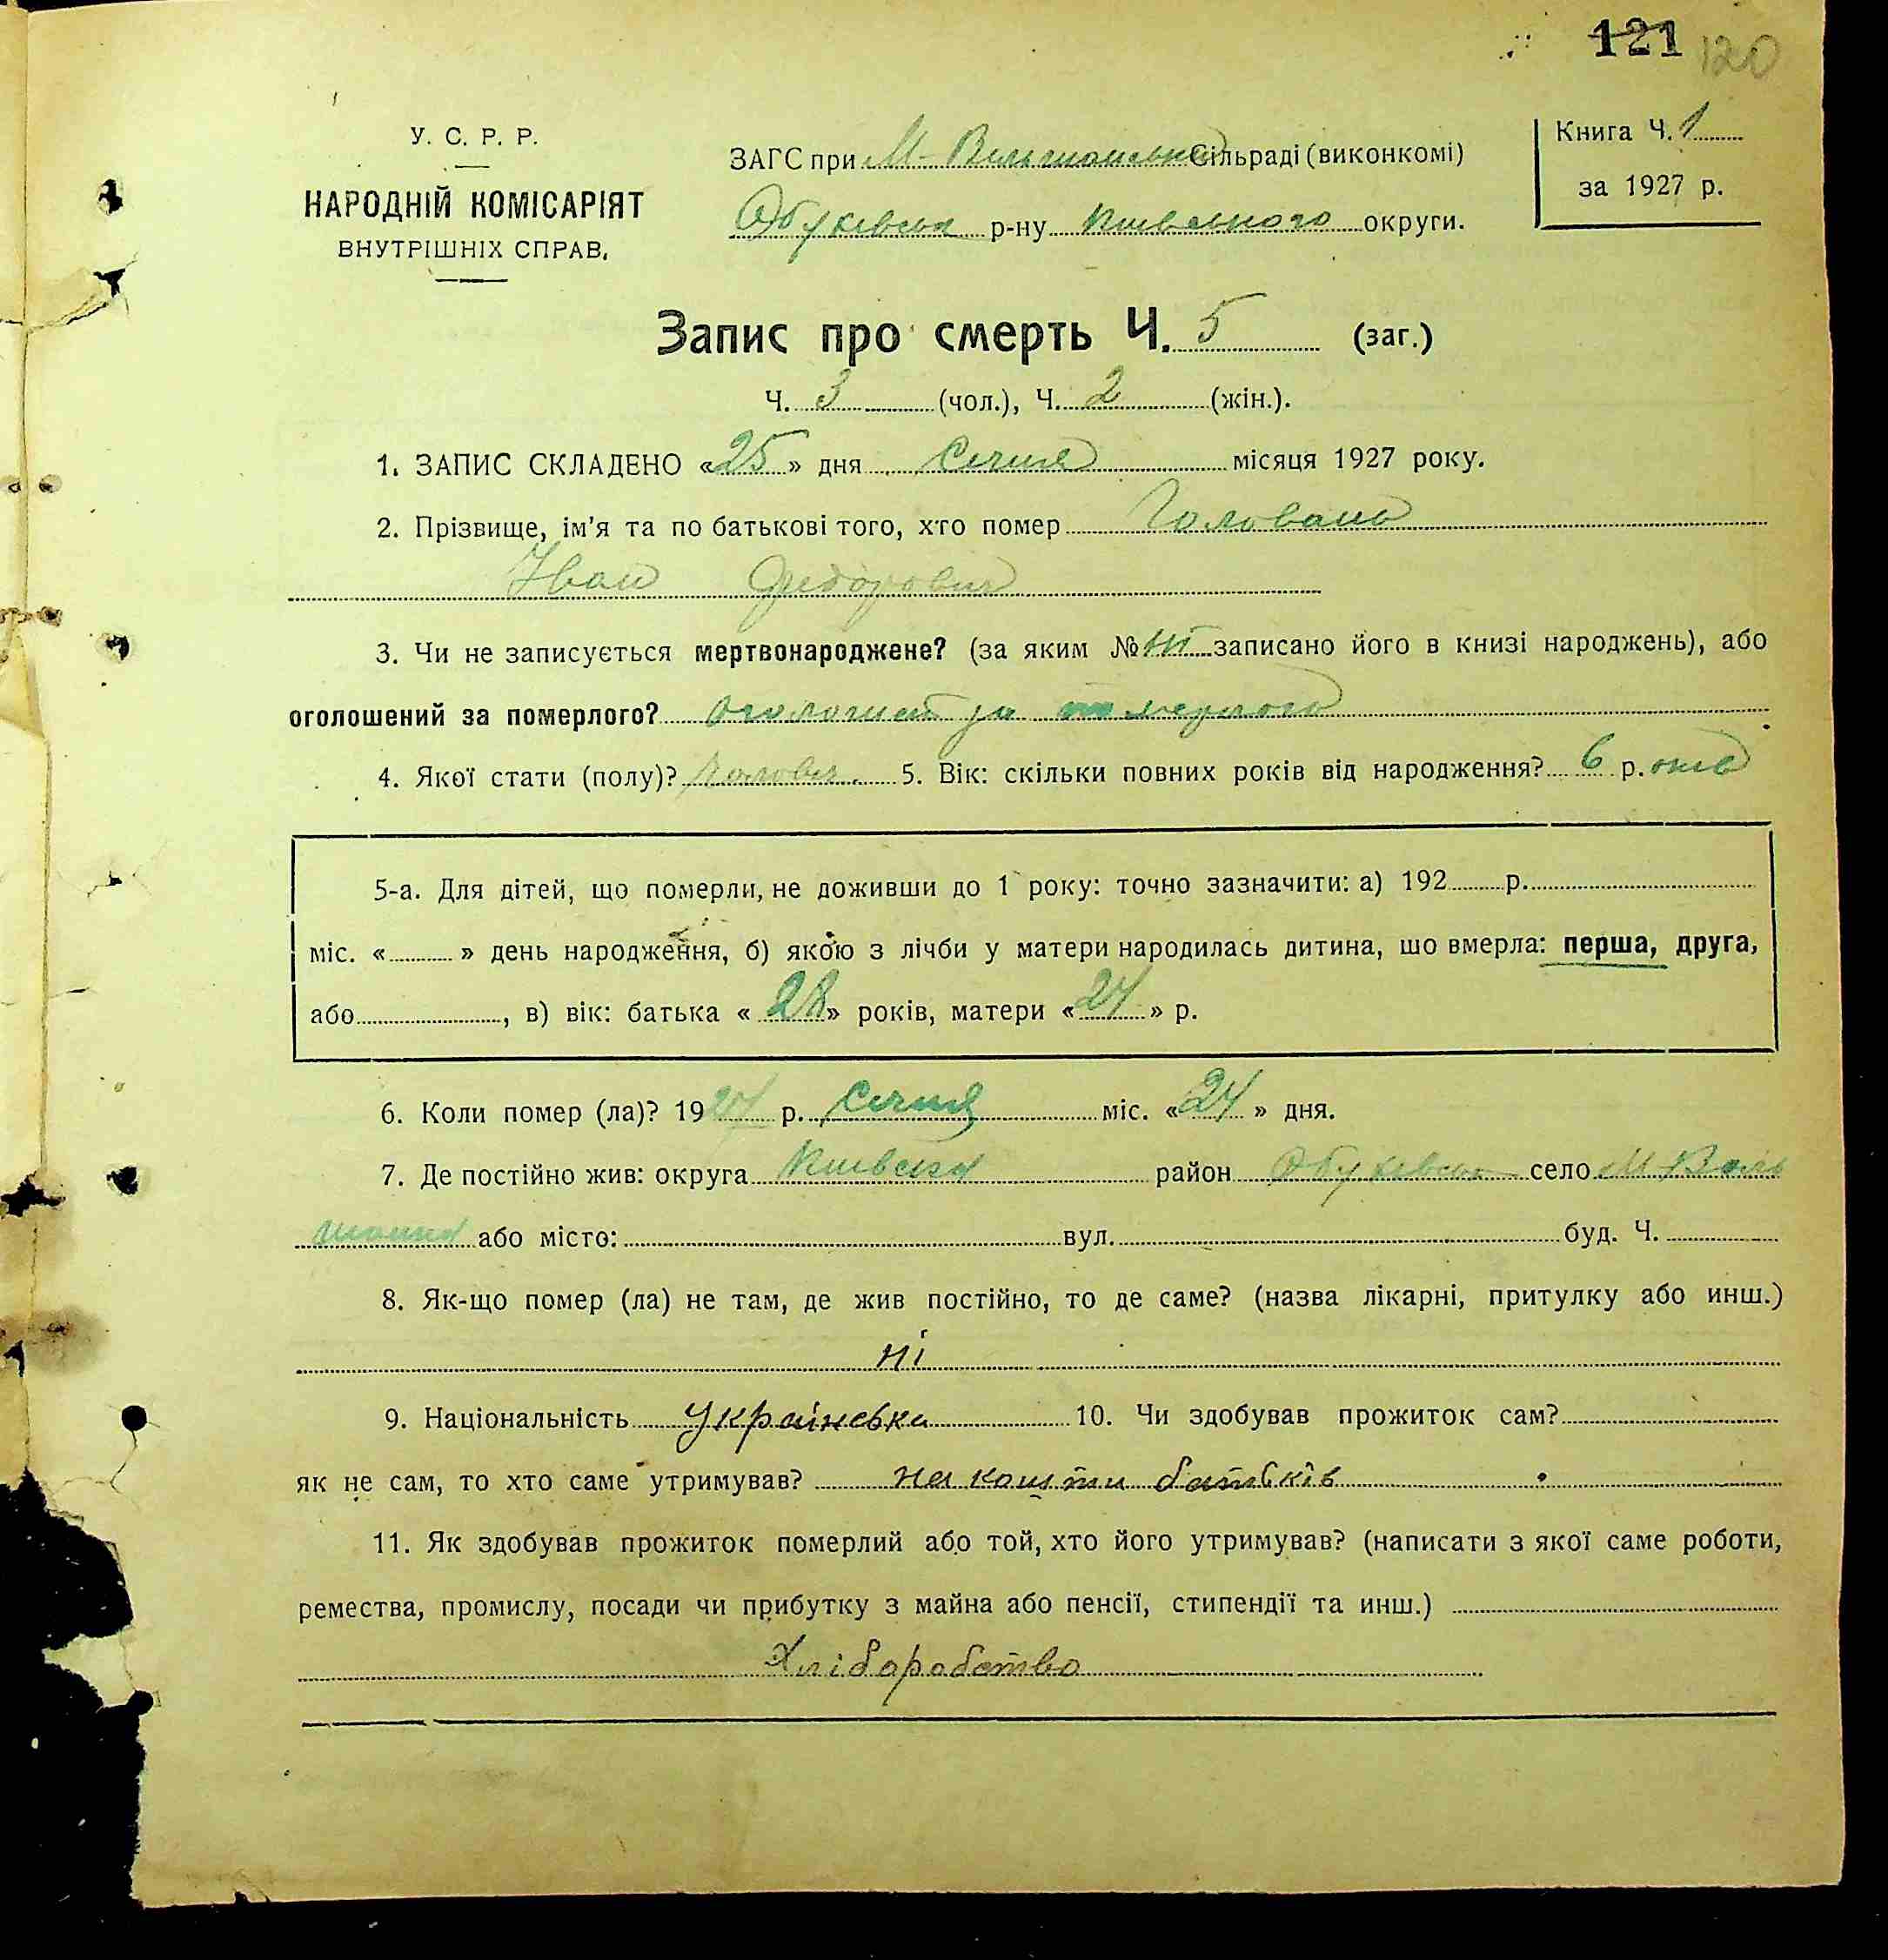 121 120
У. С. Р. Р.
НАРОДНІЙ КОМІСАРІЯТ
ВНУТРІШНІХ СПРАВ.
ЗАГС при М-Вільшанській Сільраді (виконкомі)
Обухівськ р-ну Київського округи.
Книга Ч. 1
за 1927 р.
Запис про смерть Ч. 5 (заг.)
Ч. 3 (чол.), Ч. 2 (жін.).
1. ЗАПИС СКЛАДЕНО «25» дня Січня місяця 1927 року.
2. Прізвище, ім'я та по батькові того, хто помер Головань
Іван Федорович
3. Чи не записується мертвонароджене? (за яким № ні записано його в книзі народжень), або
оголошений за померлого? оголошен за померлого
4. Якої стати (полу)? Чоловіч. 5. Вік: скільки повних років від народження? 6 р.оків
5-а. Для дітей, що померли, не доживши до 1 року: точно зазначити: а) 192 р.
міс. « » день народження, б) якою з лічби у матери народилась дитина, шо вмерла: перша, друга,
або , в) вік: батька «28» років, матери «24» р.
6. Коли помер (ла)? 1927 р. Січня міс. «24» дня.
7. Де постійно жив: округа Київська район Обухівськ село М Віль
шанка або місто: вул. буд. Ч.
8. Як-що помер (ла) не там, де жив постійно, то де саме? (назва лікарні, притулку або инш.)
ні
9. Національність Українська 10. Чи здобував прожиток сам?
як не сам, то хто саме утримував? на кошти батьків
11. Як здобував прожиток померлий або той, хто його утримував? (написати з якої саме роботи,
ремества, промислу, посади чи прибутку з майна або пенсії, стипендії та инш.)
Хліборобство